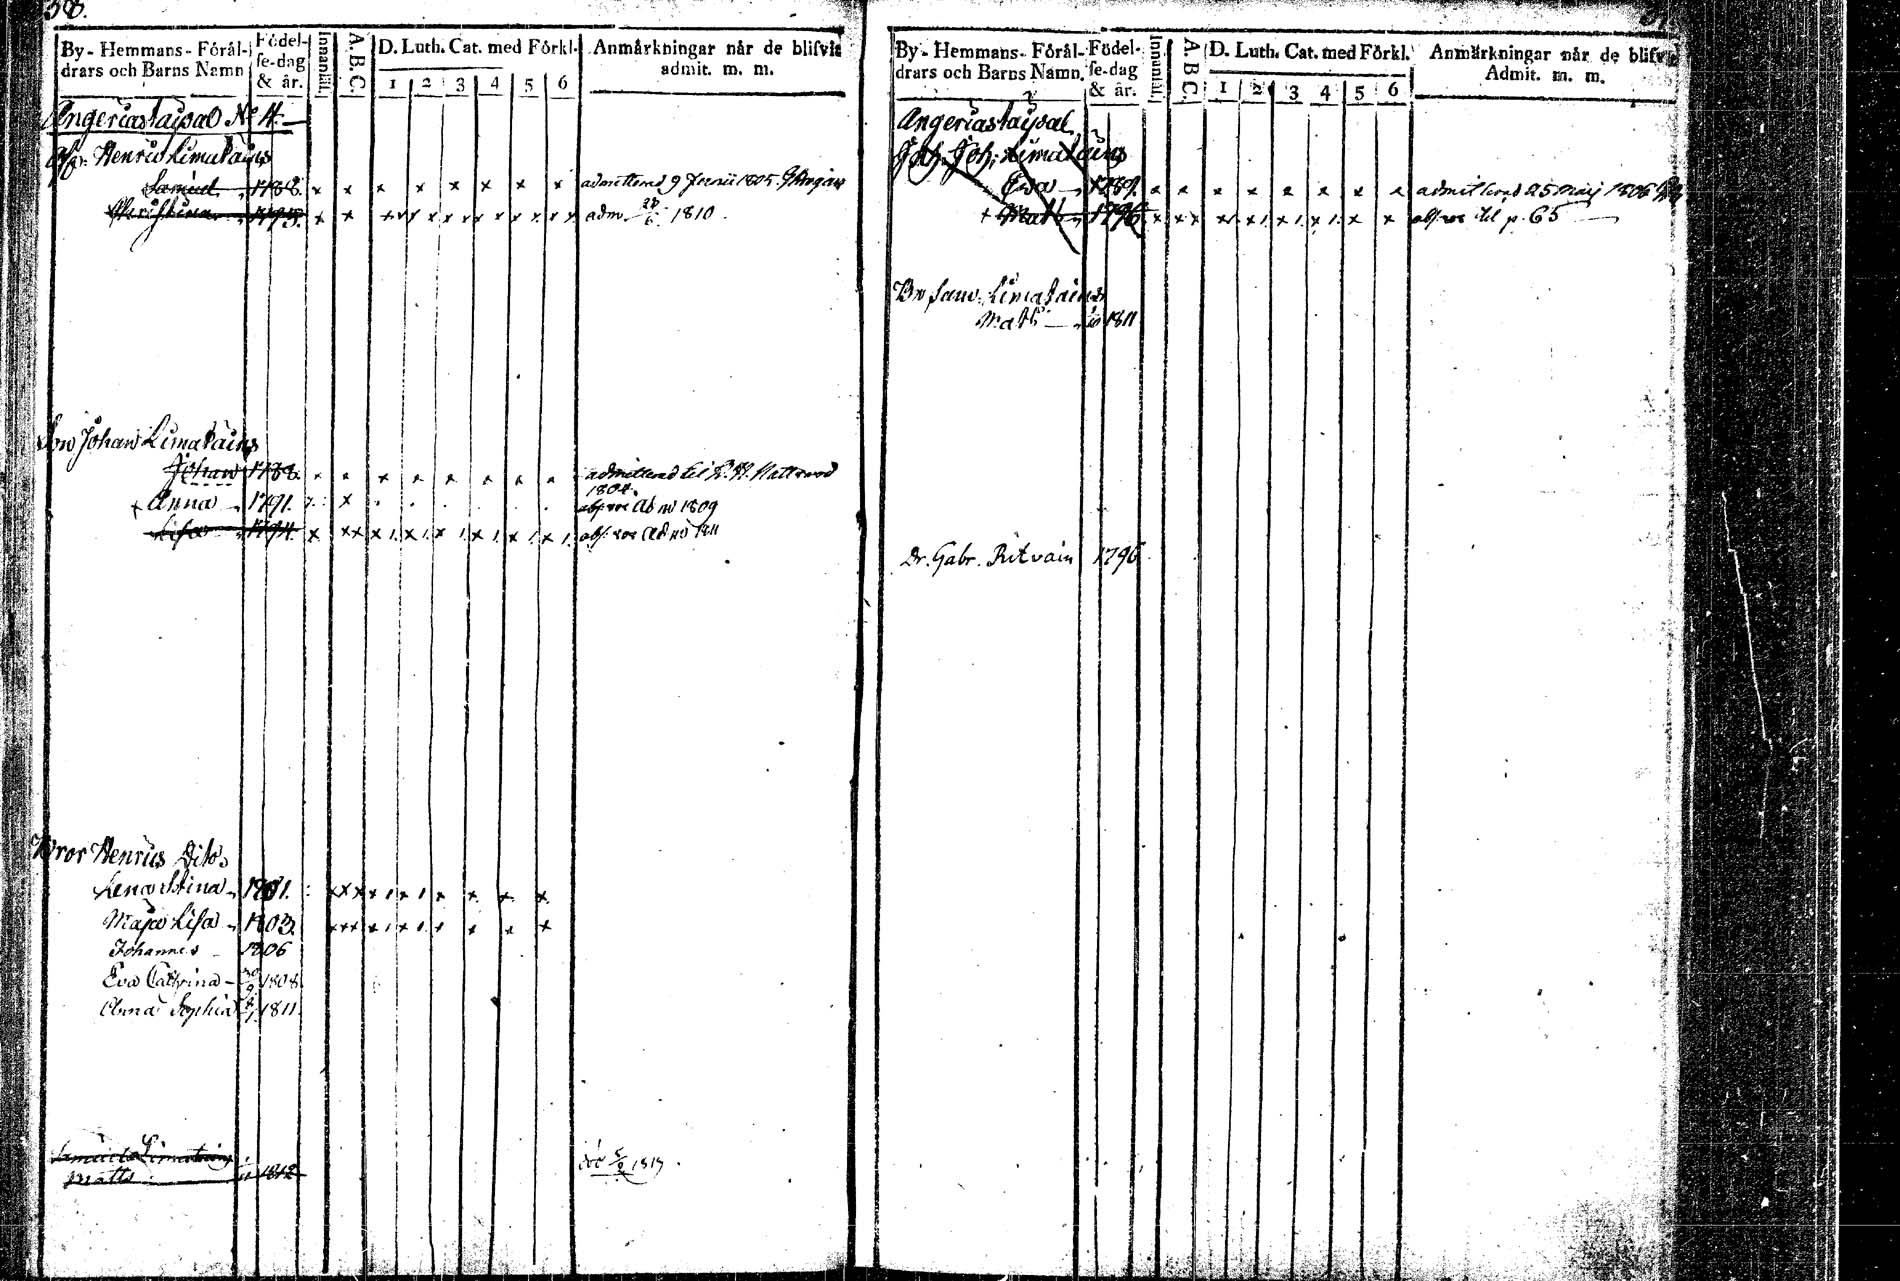 38.
By-Hemmans-Föräl-
drars och Barns Namn
Födel-
se-dag
& år.
Innanläsn.
A.B.C.
D. Luth. Cat. med Förkl.
1 2 3 4 5 6
Anmärkningar når de blifvit
admit. m. m.
Angeriastaipal No 4.
Henric Limatains
Samuel 1788. x x x x x x x x admitterad 9 Junii 1805.
Christina 1793. x x adm. 1810.
Son Johan Limatains
Johan 1788. x x x x x x x x admitterad til H. H. Nattvard
1804.
x Anna 1791. x abs. ad no 1809
Lisa 1794. x x x x x x x x x abs. ad no 1811
Bror Henrics Dito
Lena Stina 1801. x x x x x x x x x
Maja Lisa 1803. x x x x x x x x x
Johannes 1806
Eva Cathrina 1808
Anna Sophia 1811
Samuels Limatains
Matts 1812 1819.
By-Hemmans-Föräl-
drars och Barns Namn.
Födel-
se-dag
& år.
Innanläsn.
A.B.C.
D. Luth. Cat. med Förkl.
1 2 3 4 5 6
Anmärkningar når de blifvit
Admit. m. m.
Angeriastaipal
Joh. Joh. Limatains
Eva 1789. x x x x x x x x admitterad 25 Maij 1806
+ Math. 1796 x x x x x x x x x til p. 65
Limatains
Math. 1811
Dr. Gabr. Ritvain 1796